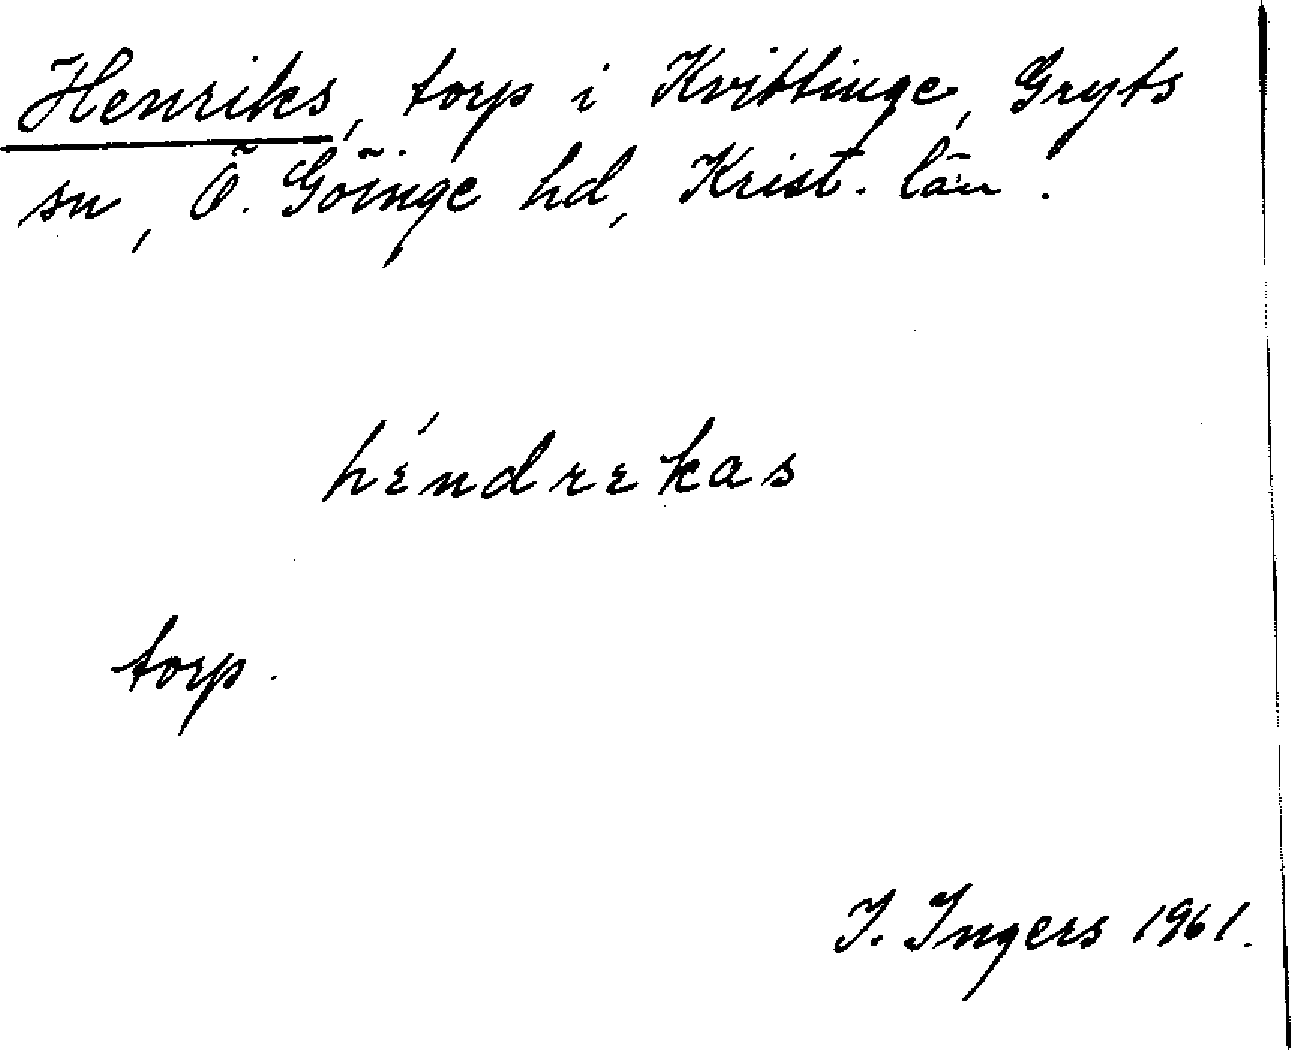 Henriks, torp i Kvittinge, Gryts
sn, Ö. Göinge hd, Krist. län.
hɛ́ndrɛkas
torp.
I. Ingers 1961.